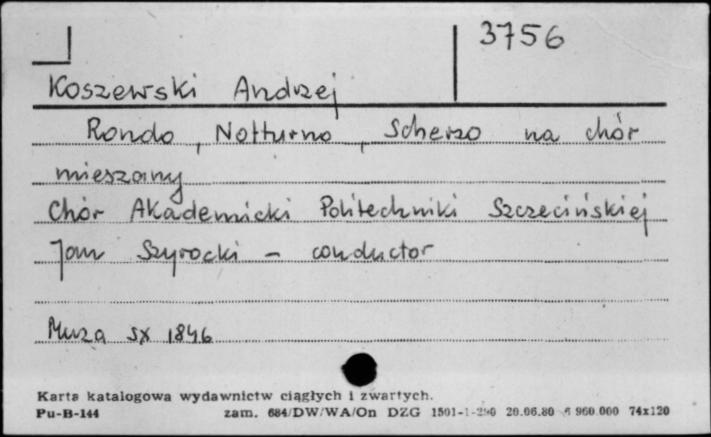 3756
Koszewski Andrzej
Rondo, Notturno, Scherzo na chór
mieszany
Chór Akademicki Politechniki Szczecińskiej
Jan Szyrocki - conductor
Muza SX 1846
Karta katalogowa wydawnictw ciągłych i zwartych.
Pu-B-144 zam. 684/DW/WA/On DZG 20.06.80 960.000 74x120